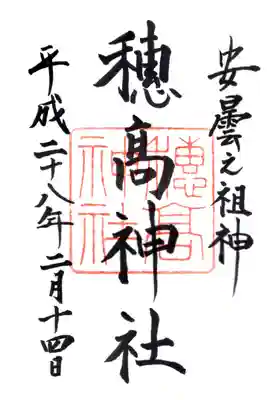 安曇之祖神
穂髙神社
平成二十八年二月十四日
穂高神社